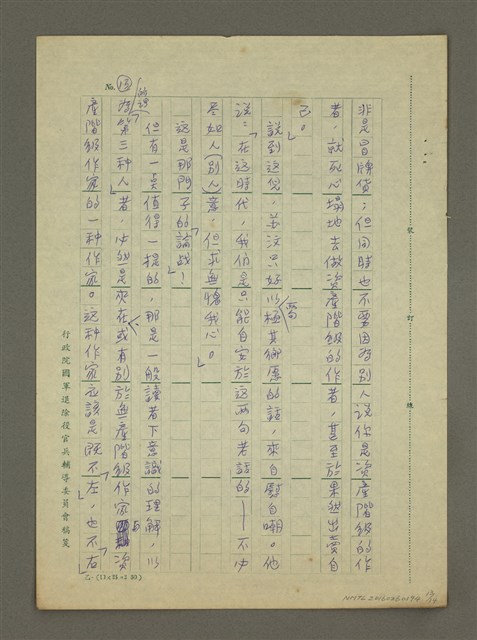 非是冒牌貨；但同時也不要因為別人說你是資產階級的作
者，就死心塌地去做資產階級的作者，甚至於果然出賣自
己。」
說到這兒，蘇汶只好以極其鄉愿的話，來自慰自嘲。他
說：「在這時代，我們是只能自安於這兩句老話的——不必
盡如人（別人）意，但求無愧我心。」
這是那門子的論戰！
但有一點值得一提的，那是一般讀者下意識的理解，以
為「第三种人」者，必然是夾在或有別於無產階級作家與資
的確
產階級作家的一种作家。這种作家應該是既不「左」，也不「右」
No. 13
裝 訂 線
行政院國軍退除役官兵輔導委員會稿箋
乙·(11x25=2 20)
NMTL20160260194